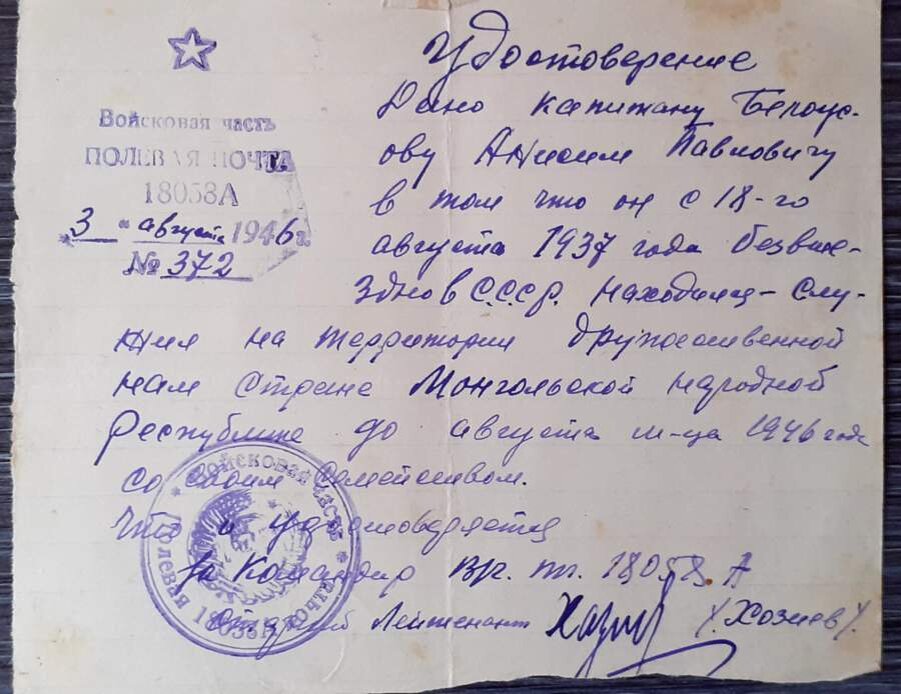 Войсковая часть
ПОЛЕВАЯ ПОЧТА
18058А
"3" августа 1946 г.
№ 372
Удостоверение
Дано капитану Белоус-
ову Анисим Павловичу
в том что он с 18-го
августа 1937 года безвые-
здно в С.С.С.Р. находился – слу-
жил на территории дружественной
нам Стране Монгольской народной
Республике до августа м-ца 1946 года
со своим Семейством.
Что и удостоверяется
За Командир вр. пп. 18058 А
Старший Лейтенант /Хозиев/.
Войсковая часть
Полевая почта
18058